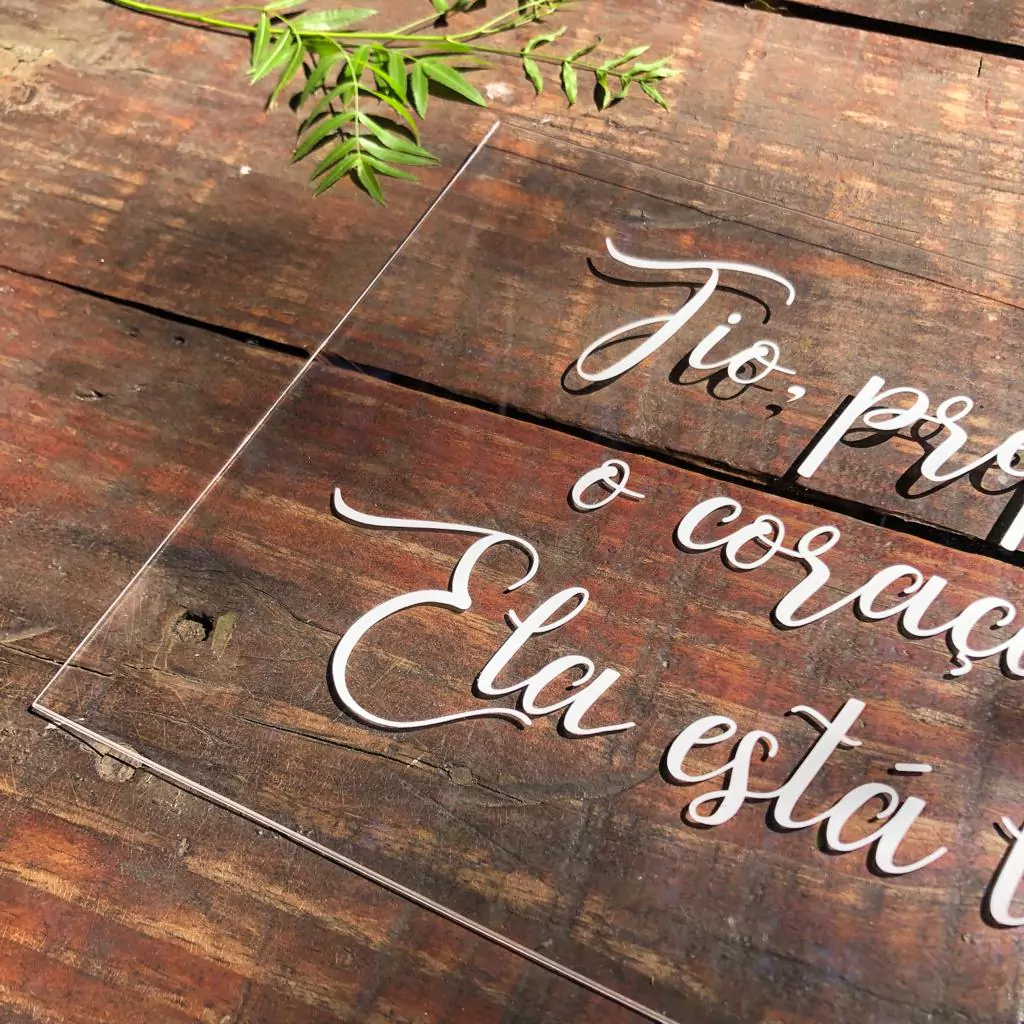 Tio, prep
o coraçã
Ela está